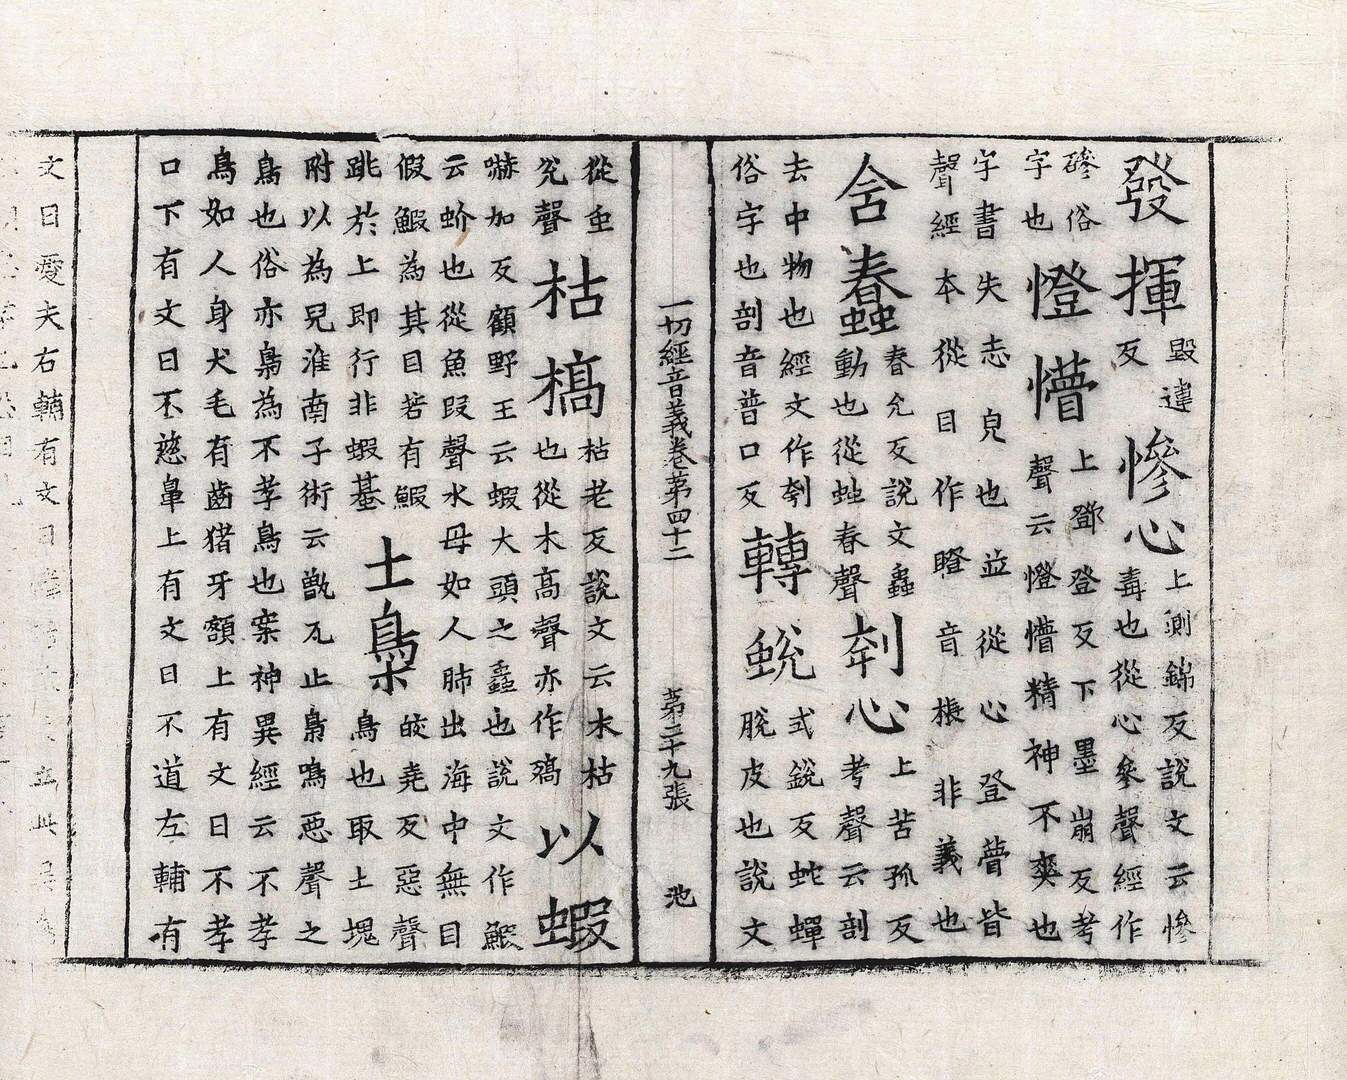 發揮毀違反慘心上測錦反說文云慘毒也從心參聲經作
磣俗字也憕懵上鄧登反下墨崩反考聲云憕懵精神不爽也
字書失志皃也並從心登瞢皆聲經本從目作瞪音棖非義也
含蠢春允反說文蟲動也從䖵春聲刳心上苦孤反考聲云剖
去中物也經文作刳俗字也剖音普口反轉蛻式銳反蛇蟬脫皮也說文
一切經音義卷第四十二 第二十九張 池
從虫兊聲枯槁枯老反說文云木枯也從木高聲亦作以蝦
嚇加反顧野王云蝦大頭之蟲也說文作鰕云魪也從魚叚聲水母如人肺出海中無目
假鰕為其目若有鰕跳於上即行非蝦蟇土梟皎堯反惡聲鳥也取土塊
附以為兒淮南子術云甑瓦止梟鳴惡聲之鳥也俗亦梟為不孝鳥也案神異經云不孝
鳥如人身犬毛有齒猪牙額上有文曰不孝口下有文曰不慈鼻上有文曰不道左輔有
文曰愛夫右輔有文曰